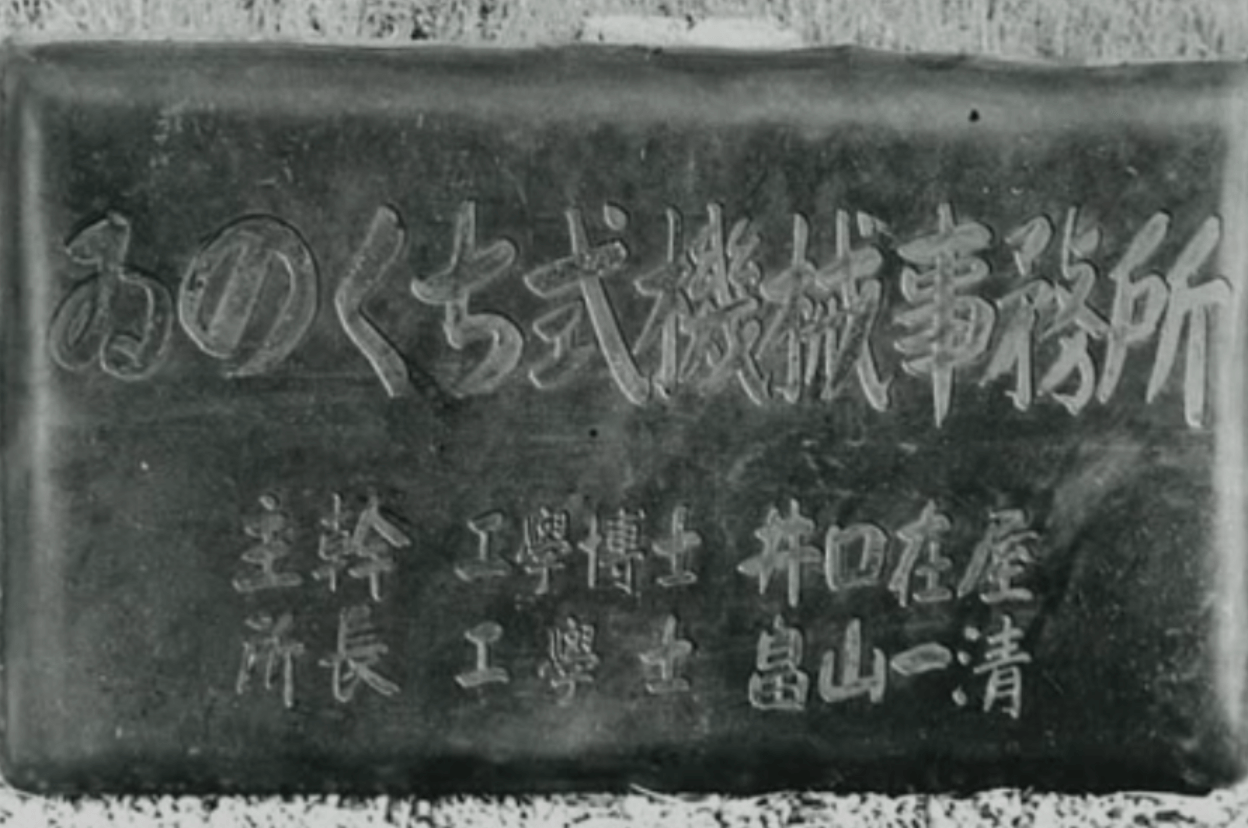 ゐのくち式機械事務所
主幹 工學博士 井口在屋
所長 工學士 畠山一清